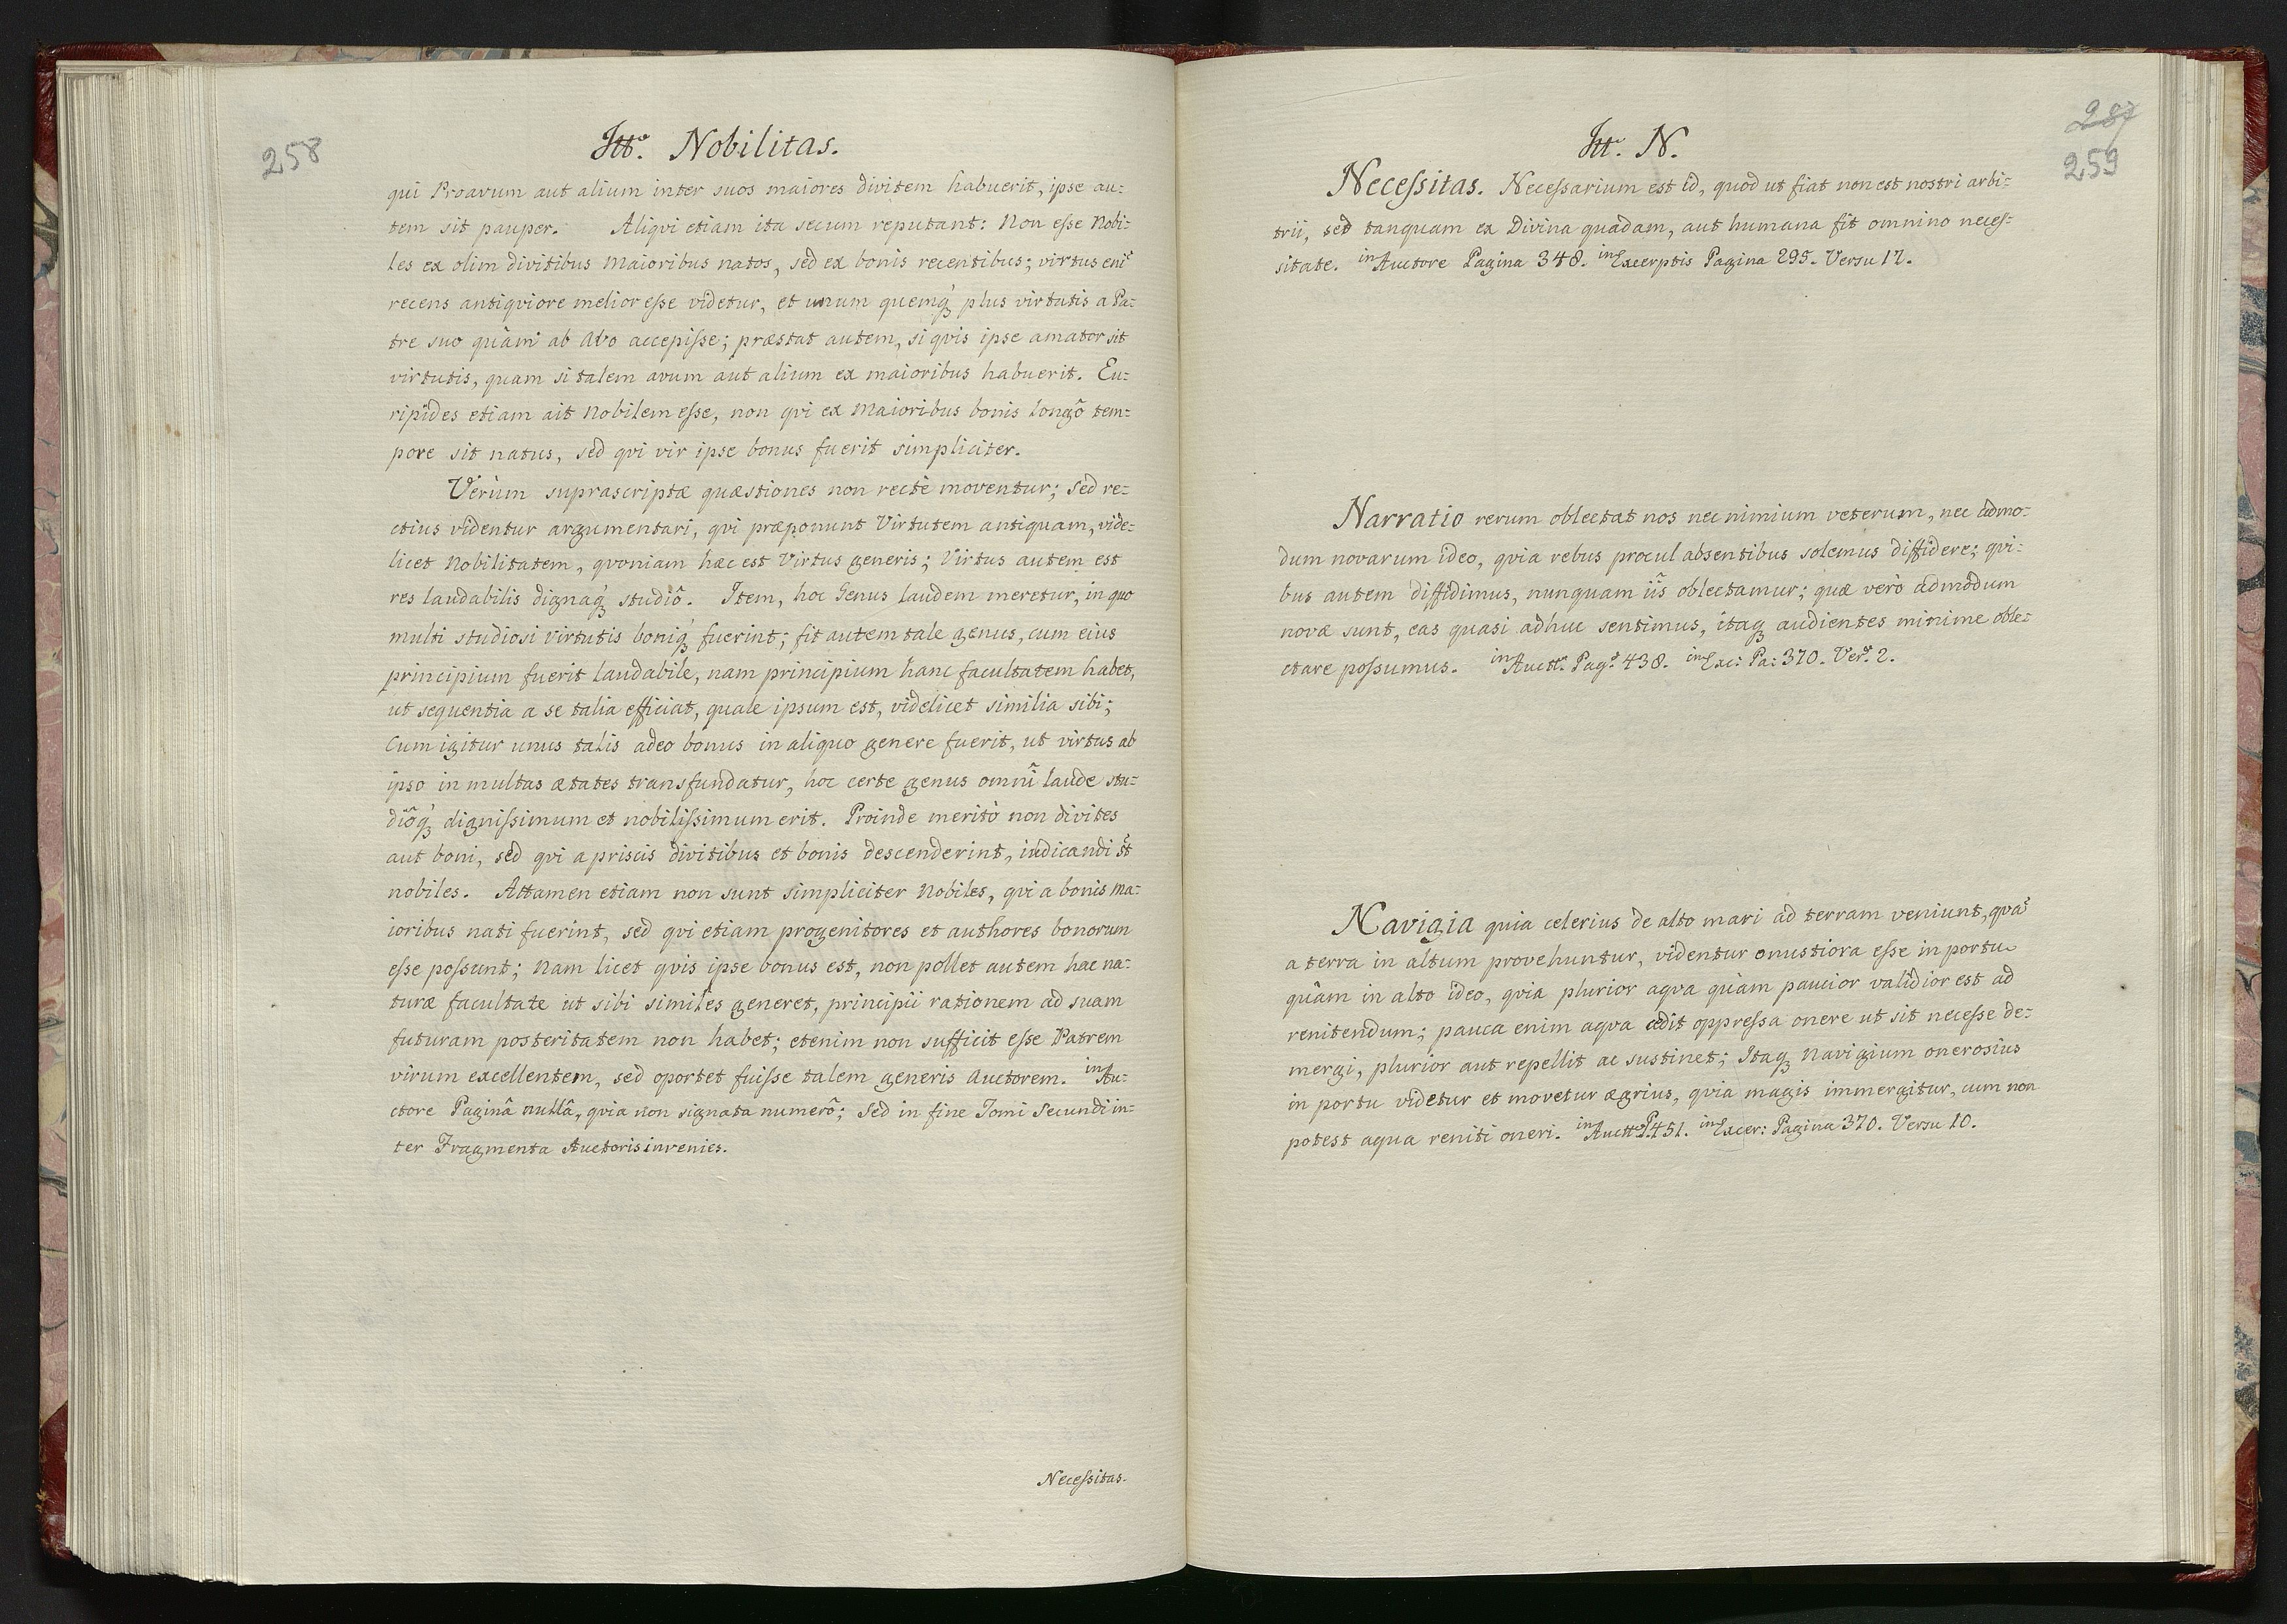 258
Itt͠. Nobilitas.
qui Proavum aut alium inter suos maiores divitem habuerit, ipse au=
tem sit pauper. Aliqvi etiam ita secum reputant: Non eſse Nobi=
les ex olim divitibus Maioribus natos, sed ex bonis recentibus; virtus eni͠
recens antiqviore melior eſse videtur, et unum quemq́ꝫ plus virtutis a Pa=
tre suo quàm ab Avo accepiſse; præstat autem, si qvis ipse amator sit
virtutis, quam si talem avum aut alium ex maioribus habuerit. Eu=
ripides etiam ait Nobilem eſse, non qvi ex Maioribus bonis longô tem=
pore sit natus, sed qvi vir ipse bonus fuerit simpliciter.
Verùm suprascriptæ quæstiones non rectè moventur; sed re=
ctius videntur argumentari, qvi præponunt Virtutem antiquam, vide=
licet Nobilitatem, qvoniam hæc est Virtus generis; Virtus autem est
res laudabilis dignaq́ꝫ studiô. Item, hoc Genus laudem meretur, in quo
multi studiosi virtutis boniq́ꝫ fuerint; fit autem tale genus, cum eius
principium fuerit laudabile, nam principium hanc facultatem habet,
ut sequentia a se talia efficiat, quale ipsum est, videlicet similia sibi;
Cum igitur unus talis adeo bonus in aliquo genere fuerit, ut virtus ab
ipso in multas ætates transfundatur, hoc certe genus omni͠ laude stu=
diôq́ꝫ digniſsimum et nobiliſsimum erit. Proinde meritò non divites
aut boni, sed qvi a priscis divitibus et bonis descenderint, iudicandi st͠
nobiles. Attamen etiam non sunt simpliciter Nobiles, qvi a bonis ma=
ioribus nati fuerint, sed qvi etiam progenitores et authores bonorum
eſse poſsunt; Nam licet qvis ipse bonus est, non pollet autem hac na=
turæ facultate ut sibi similes generet, principii rationem ad suam
futuram posteritatem non habet; etenim non sufficit eſse Patrem
virum excellentem, sed oportet fuiſse talem generis Auctorem. in Au=
ctore Paginâ nullâ, qvia non signata numerô; Sed in fine Tomi Secundi in=
ter Fragmenta Auctoris invenies.
Neceſsitas.
287
259
Itt͠. N.
Neceſsitas. Neceſsarium est id, quod ut fiat non est nostri arbi=
trii, sed tanquam ex Divina quadam, aut humana fit omnino neceſ=
sitate. in Auctore Pagina 348. in Excerptis Pagina 295. Versu 17.
Narratio rerum oblectat nos nec nimium veterum, nec admo=
dum novarum ideo, qvia rebus procul absentibus solemus diffidere; qvi=
bus autem diffidimus, nunquam iis͠ oblectamur; quæ verò admodum
novæ sunt, eas quasi adhuc sentimus, itaqꝫ audientes minime oble=
ctare poſsumus. in Auctt͠. Pag͠. 438. in Exc: Pa: 370. Ver͠. 2.
Navigia quia celerius de alto mari ad terram veniunt, qva͠
a terra in altum provehuntur, videntur onustiora esse in portu
quàm in alto ideo, qvia plurior aqva quàm paucior validior est ad
renitendum; pauca enim aqva cedit oppreſsa onere ut sit neceſse de=
mergi, plurior aut repellit ac sustinet; Itaqꝫ Navigium onerosius
in portu videtur et movetur ægrius, qvia magis immergitur, cum non
potest aqua reniti oneri. in Auctt͠. P. 451. in Excer: Pagina 370. Versu 10.